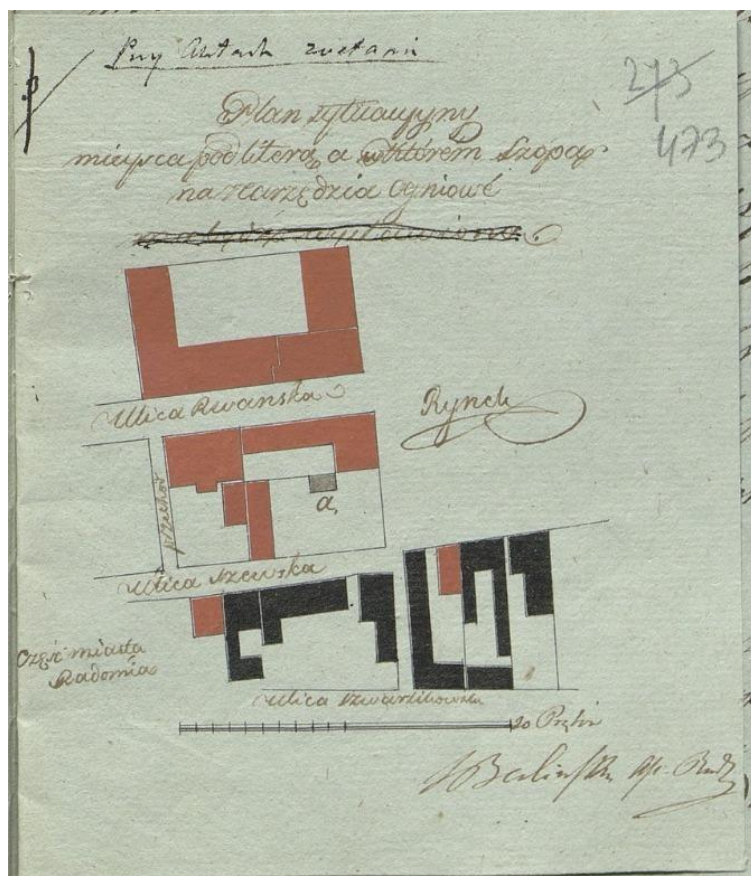 Przy Aktach zostanie
273
473
Plan sytuacyjny
mieysca pod literą a w którem Szopa
na narzędzia Ogniowe
Ulica Rwanska
Rynek
przechod
a,
Ulica Szewska
Część miasta
Radomia
Ulica Szwarlikowska
20 Prętów